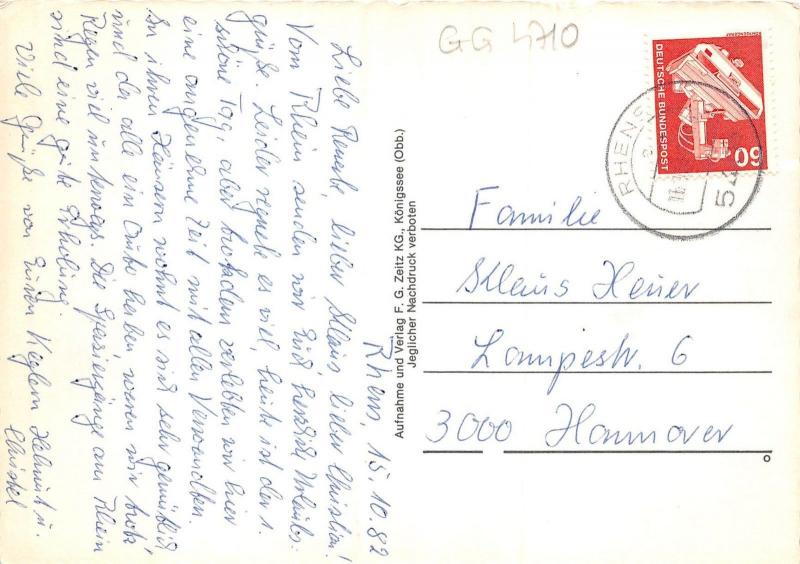 GG 4710
DEUTSCHE BUNDESPOST
60
RHENS
54
Rhens, 15.10.82
Liebe Renate, lieber Klaus, lieber Christian!
Vom Rhein senden wir Euch herzliche Urlaubs-
grüße. Leider regnete es viel, heute ist der 1.
schöne Tag, aber trotzdem verlebten wir hier
eine angenehme Zeit mit allen Verwandten.
In ihren Häusern wohnt es sich sehr gemütlich
und da alle ein Auto haben, waren wir trotz
Regen viel unterwegs. Die Spaziergänge am Rhein
sind eine gute Erholung.
Viele Grüße von Euren Keglern Helmut u.
Christel
Aufnahme und Verlag F. G. Zeitz KG., Königssee (Obb.)
Jeglicher Nachdruck verboten
Familie
Klaus Heuer
Lampestr. 6
3000 Hannover